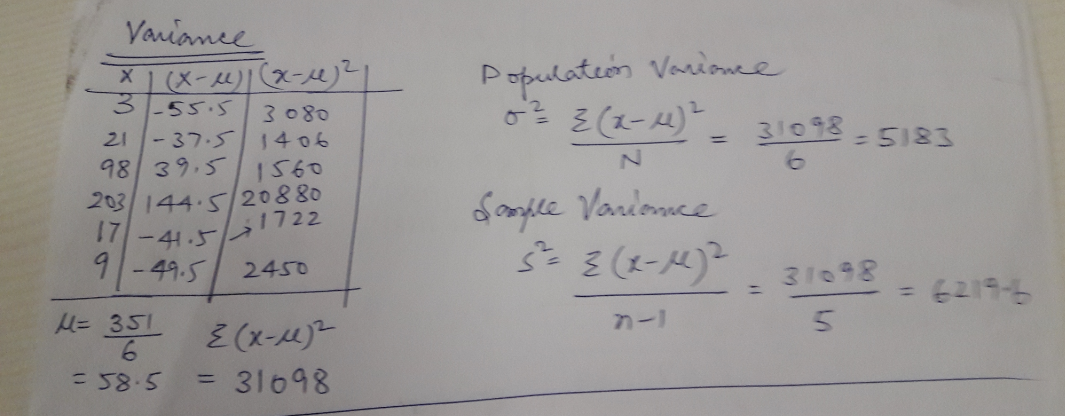 Variance
x | (x-μ) | (x-μ)² |
3 | -55.5 | 3080
21 | -37.5 | 1406
98 | 39.5 | 1560
203 | 144.5 | 20880
17 | -41.5 | → 1722
9 | -49.5 | 2450
μ = 351/6 Σ(x-μ)²
= 58.5 = 31098
Population Variance
σ² = Σ(x-μ)²/N = 31098/6 = 5183
Sample Variance
s² = Σ(x-μ)²/n-1 = 31098/5 = 6219.6